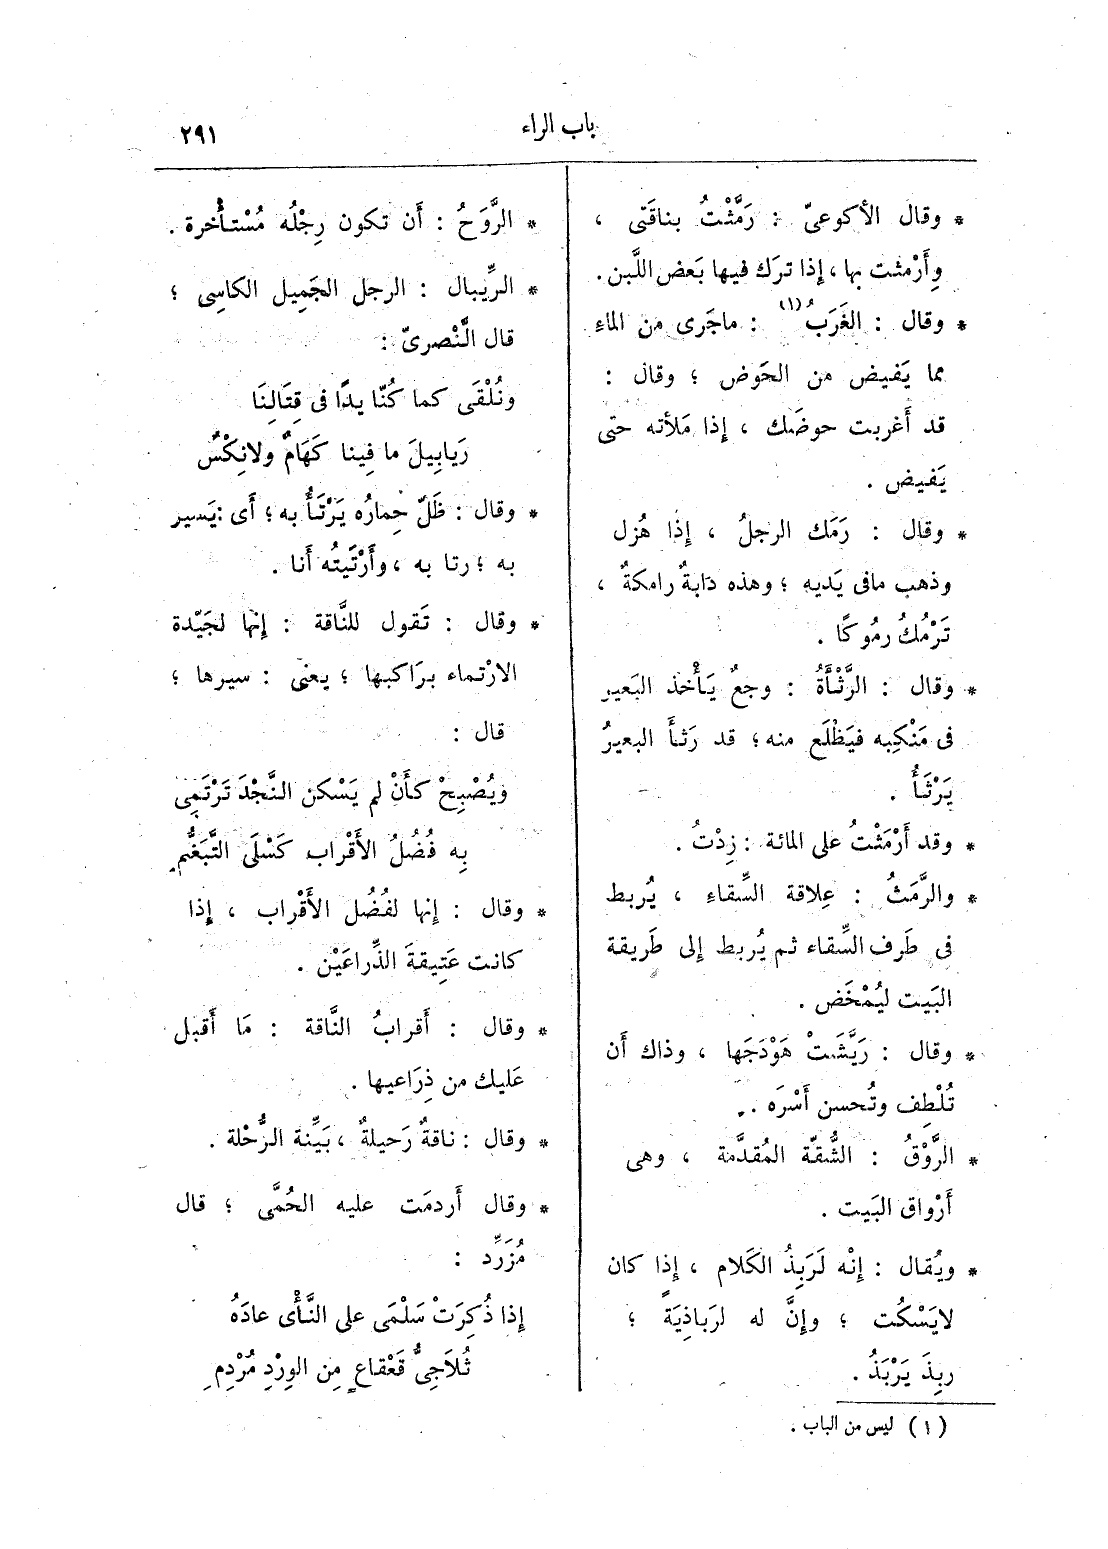 باب الراء
٢٩١
* وقال الأكوعىّ : رَمَّثْتُ بناقَتى ،
وأَرْمثت بها ، إذا ترَك فيها بَعض اللَّبن .
* وقال : الغَرَبُ(١) : ماجَرى من الماءِ
مما يَفيض من الحَوض ؛ وقال :
قد أَغربت حوضَك ، إذا مَلأته حتى
يَفيض .
* وقال : رَمَك الرجلُ ، إذا هُزل
وذهب مافى يَديه ؛ وهذه دَابةٌ رامكةٌ ،
تَرْمُكُ رمُوكًا .
* وقال : الرَّثْأَةُ : وجعٌ يَأْخذ البَعير
فى مَنْكِبه فيَظْلَع منه ؛ قد رَثأَ البعيرُ
يَرْثَأُ .
* وقد أَرْمَثْتُ على المائة : زِدْتُ .
* والرَّمَثُ : عِلاقة السِّقاءِ ، يُربط
فى طَرف السِّقاء ثم يُربط إلى طَريقة
البَيت ليُمْخَض .
* وقال : رَيَّشَتْ هَوْدَجَها ، وذاك أَن
تُلْطِف وتُحسن أَسْرَه .
* الرَّوْقُ : الشُّقّة المُقدَّمة ، وهى
أَرْواق البَيت .
* ويُقال : إنّه لَرَبِذُ الكَلام ، إذا كان
لايَسْكُت ؛ وإنَّ له لرَباذِيَةً ؛
ربِذَ يَرْبَذُ .
(١) ليس من الباب .
* الرَّوَحُ : أَن تكون رِجْلُه مُسْتأْخرة .
* الرِّيبال : الرجل الجَمِيل الكاسِى ؛
قال النَّصرىّ :
ونُلْقَى كما كُنّا يدًا فى قِتَالِنَا
رَيابِيلَ ما فِينا كَهَامٌ ولانِكْسُ
* وقال : ظَلّ حِمارُه يَرْتَأُ به ؛ أَى :يَسير
به ؛ رتا به ، وأَرْتَيتُه أَنا .
* وقال : تَقول للنَّاقة : إنّها لجَيّدة
الارْتماء برَاكبها ؛ يعنى : سيرها ؛
قال :
ويُصْبِحْ كأَنْ لم يَسْكن النَّجْدَ تَرْتَمِى
بِه فُضُلُ الأَقْراب كَسْلَى التَّبَغُّمِ
* وقال : إنها لفُضُل الأَقْراب ، إذا
كانت عَتِيقةَ الذِّراعَيْن .
* وقال : أَقرابُ الناقة : مَا أَقبل
عَليك من ذِرَاعيها .
* وقال : ناقةٌ رَحيلةٌ ، بَيِّنة الرُّحْلة .
* وقال أَردمَت عليه الحُمَّى ؛ قال
مُزَرِّد :
إذا ذُكِرَتْ سَلْمَى على النَّأْى عادَهُ
ثُلاَجِىُّ قَعْقاعٍ مِن الوِرْدِ مُرْدِمِ